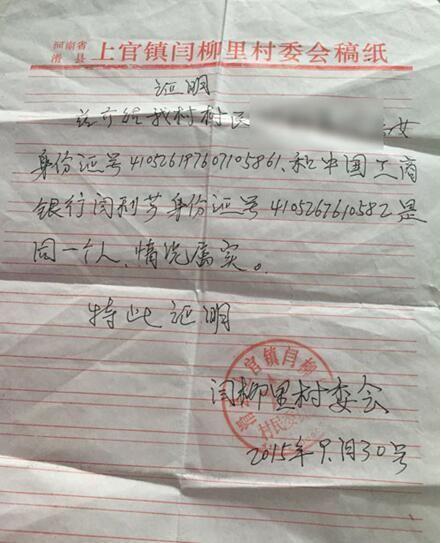 河南省
滑县 上官镇闫柳里村委会稿纸
证明
兹介绍我村村民 女
身份证号410526197607105861、和中国工商
银行闫利芳身份证号4105267610582是
同一个人、情况属实。
特此证明
官镇闫柳
村民委
闫柳里村委会
2015年9月30号